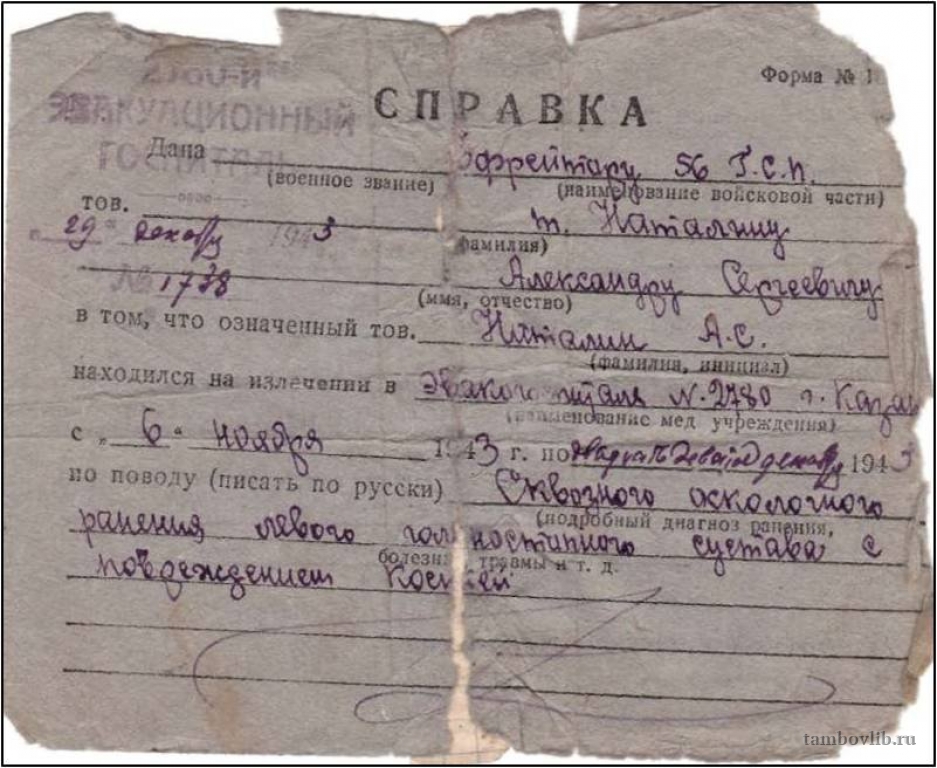 Форма № 1
ЭВАКУАЦИОННЫЙ
ГОСПИТАЛЬ
СПРАВКА
Дана ефрейтору 56 Г.С.П.
(военное звание) (наименование войсковой части)
тов. т. Наталину
„29“ декабря 1943
(фамилия)
Александру Сергеевичу
№ 1738
(имя, отчество)
в том, что означенный тов. Наталин А.С.
(фамилия, инициал)
находился на излечении в Эвакогоспитале N. 2780 г. Казан
(наименование мед учреждения)
с „6“ ноября 1943 г. по двадцать девятое декабря 1943
по поводу (писать по русски) Сквозного осколочного
(подробный диагноз ранения,
ранения левого голеностопного сустава с
болезни травмы и т. д.
повреждением костей
tambovlib.ru